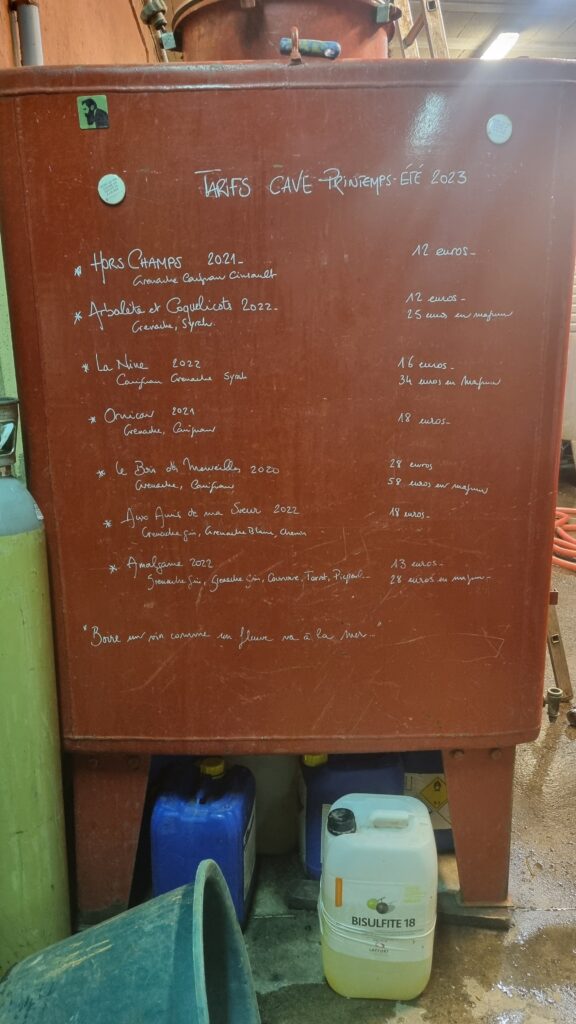 TARIFS CAVE PRINTEMPS-ÉTÉ 2023
* HORS CHAMPS 2021_ 12 euros_
Grenache Carignan Cinsault
* Arbalète et Coquelicots 2022_ 12 euros_
Grenache, Syrah 25 euros en magnum
* La Nine 2022 16 euros_
Carignan Grenache Syrah 34 euros en Magnum
* Ornicar 2021 18 euros_
Grenache, Carignan
* Le Bois des Merveilles 2020 28 euros
Grenache, Carignan 58 euros en magnum
* Aux Amis de ma Soeur 2022 18 euros_
Grenache gris, Grenache Blanc,
* Amalgame 2022 13 euros_
Grenache gris, Terret, Picpoul_ 28 euros en magnum_
"Boire un vin comme un fleuve va à la mer..."
BISULFITE 18
LAFFORT